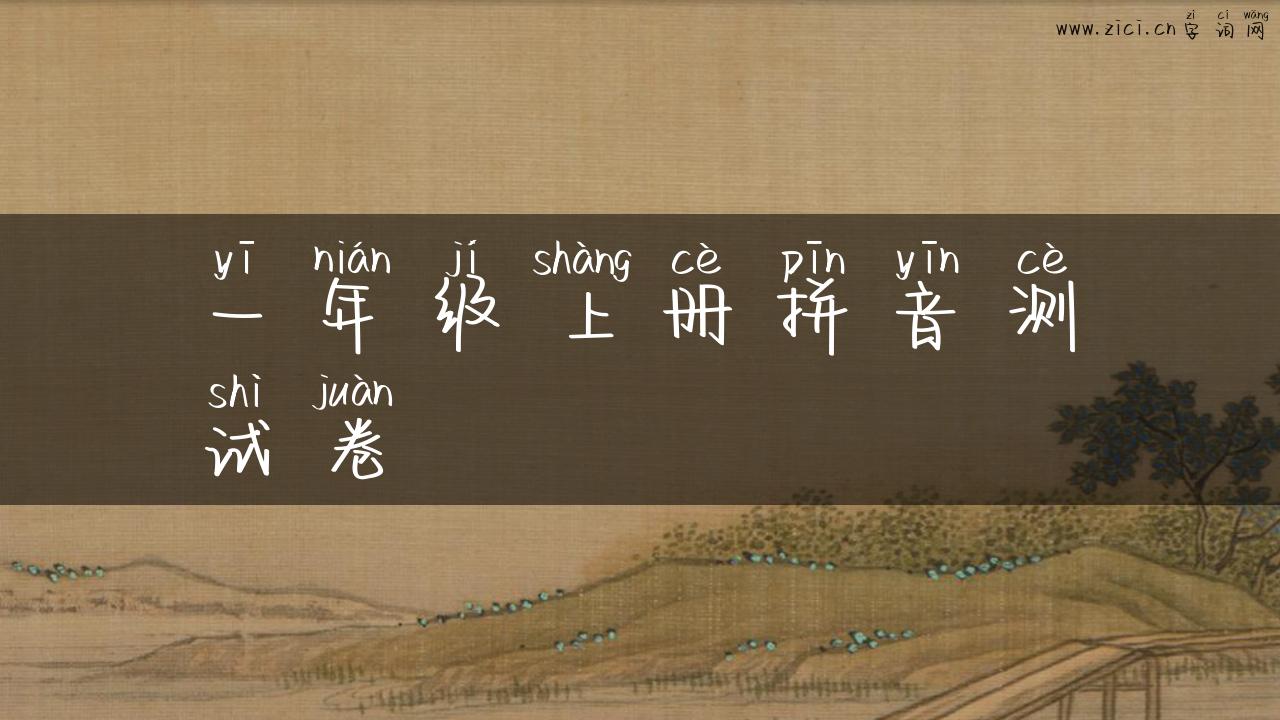 zì cí wǎng
www.zici.cn 字词网
yī nián jí shàng cè pīn yīn cè
一年级上册拼音测
shì juàn
试卷